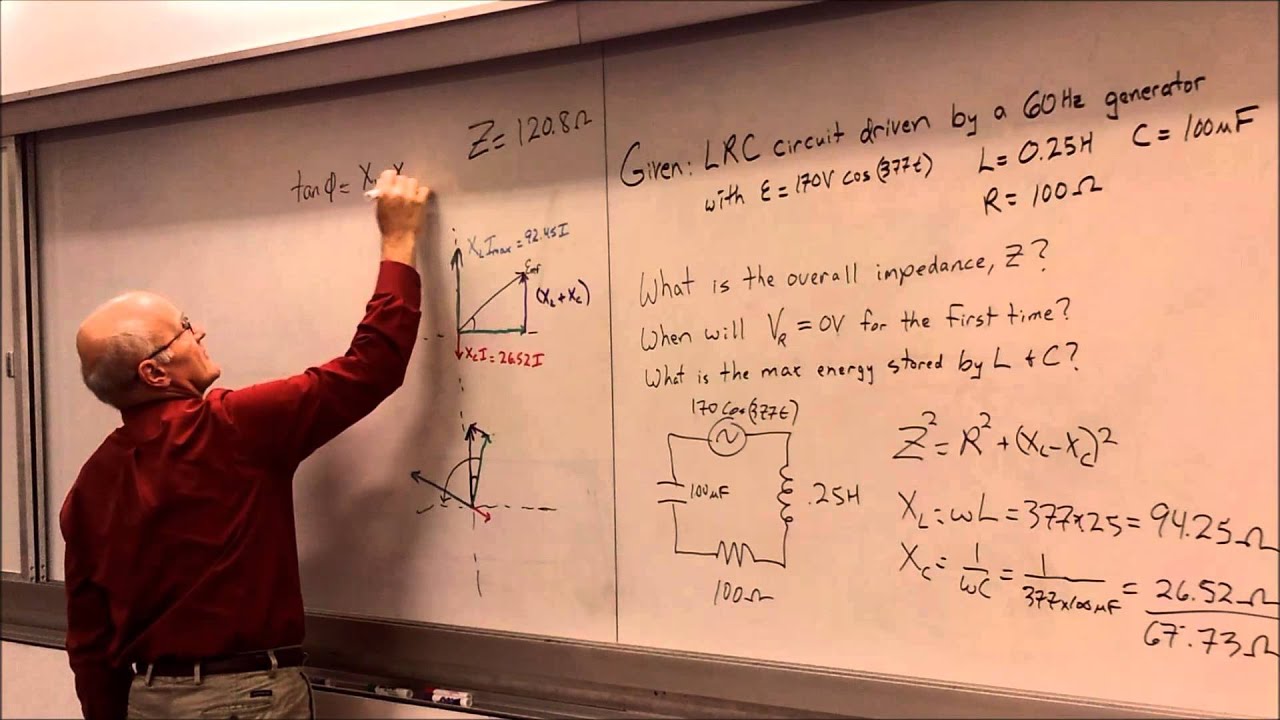 Z = 120.8Ω
tan φ = X
X_L I_max = 92.45I
Emf
(X_L + X_C)
X_C I = 26.52 I
Given: LRC circuit driven by a 60Hz generator
with ε = 170V cos(377t) L = 0.25H C = 100μF
R = 100Ω
What is the overall impedance, Z?
When will V_R = 0V for the first time?
What is the max energy stored by L + C?
170 cos(377t)
100μF
.25H
100Ω
Z² = R² + (X_L - X_C)²
X_L = ωL = 377x.25 = 94.25Ω
X_C = 1/ωC = 1/377x100μF = 26.52Ω
67.73Ω